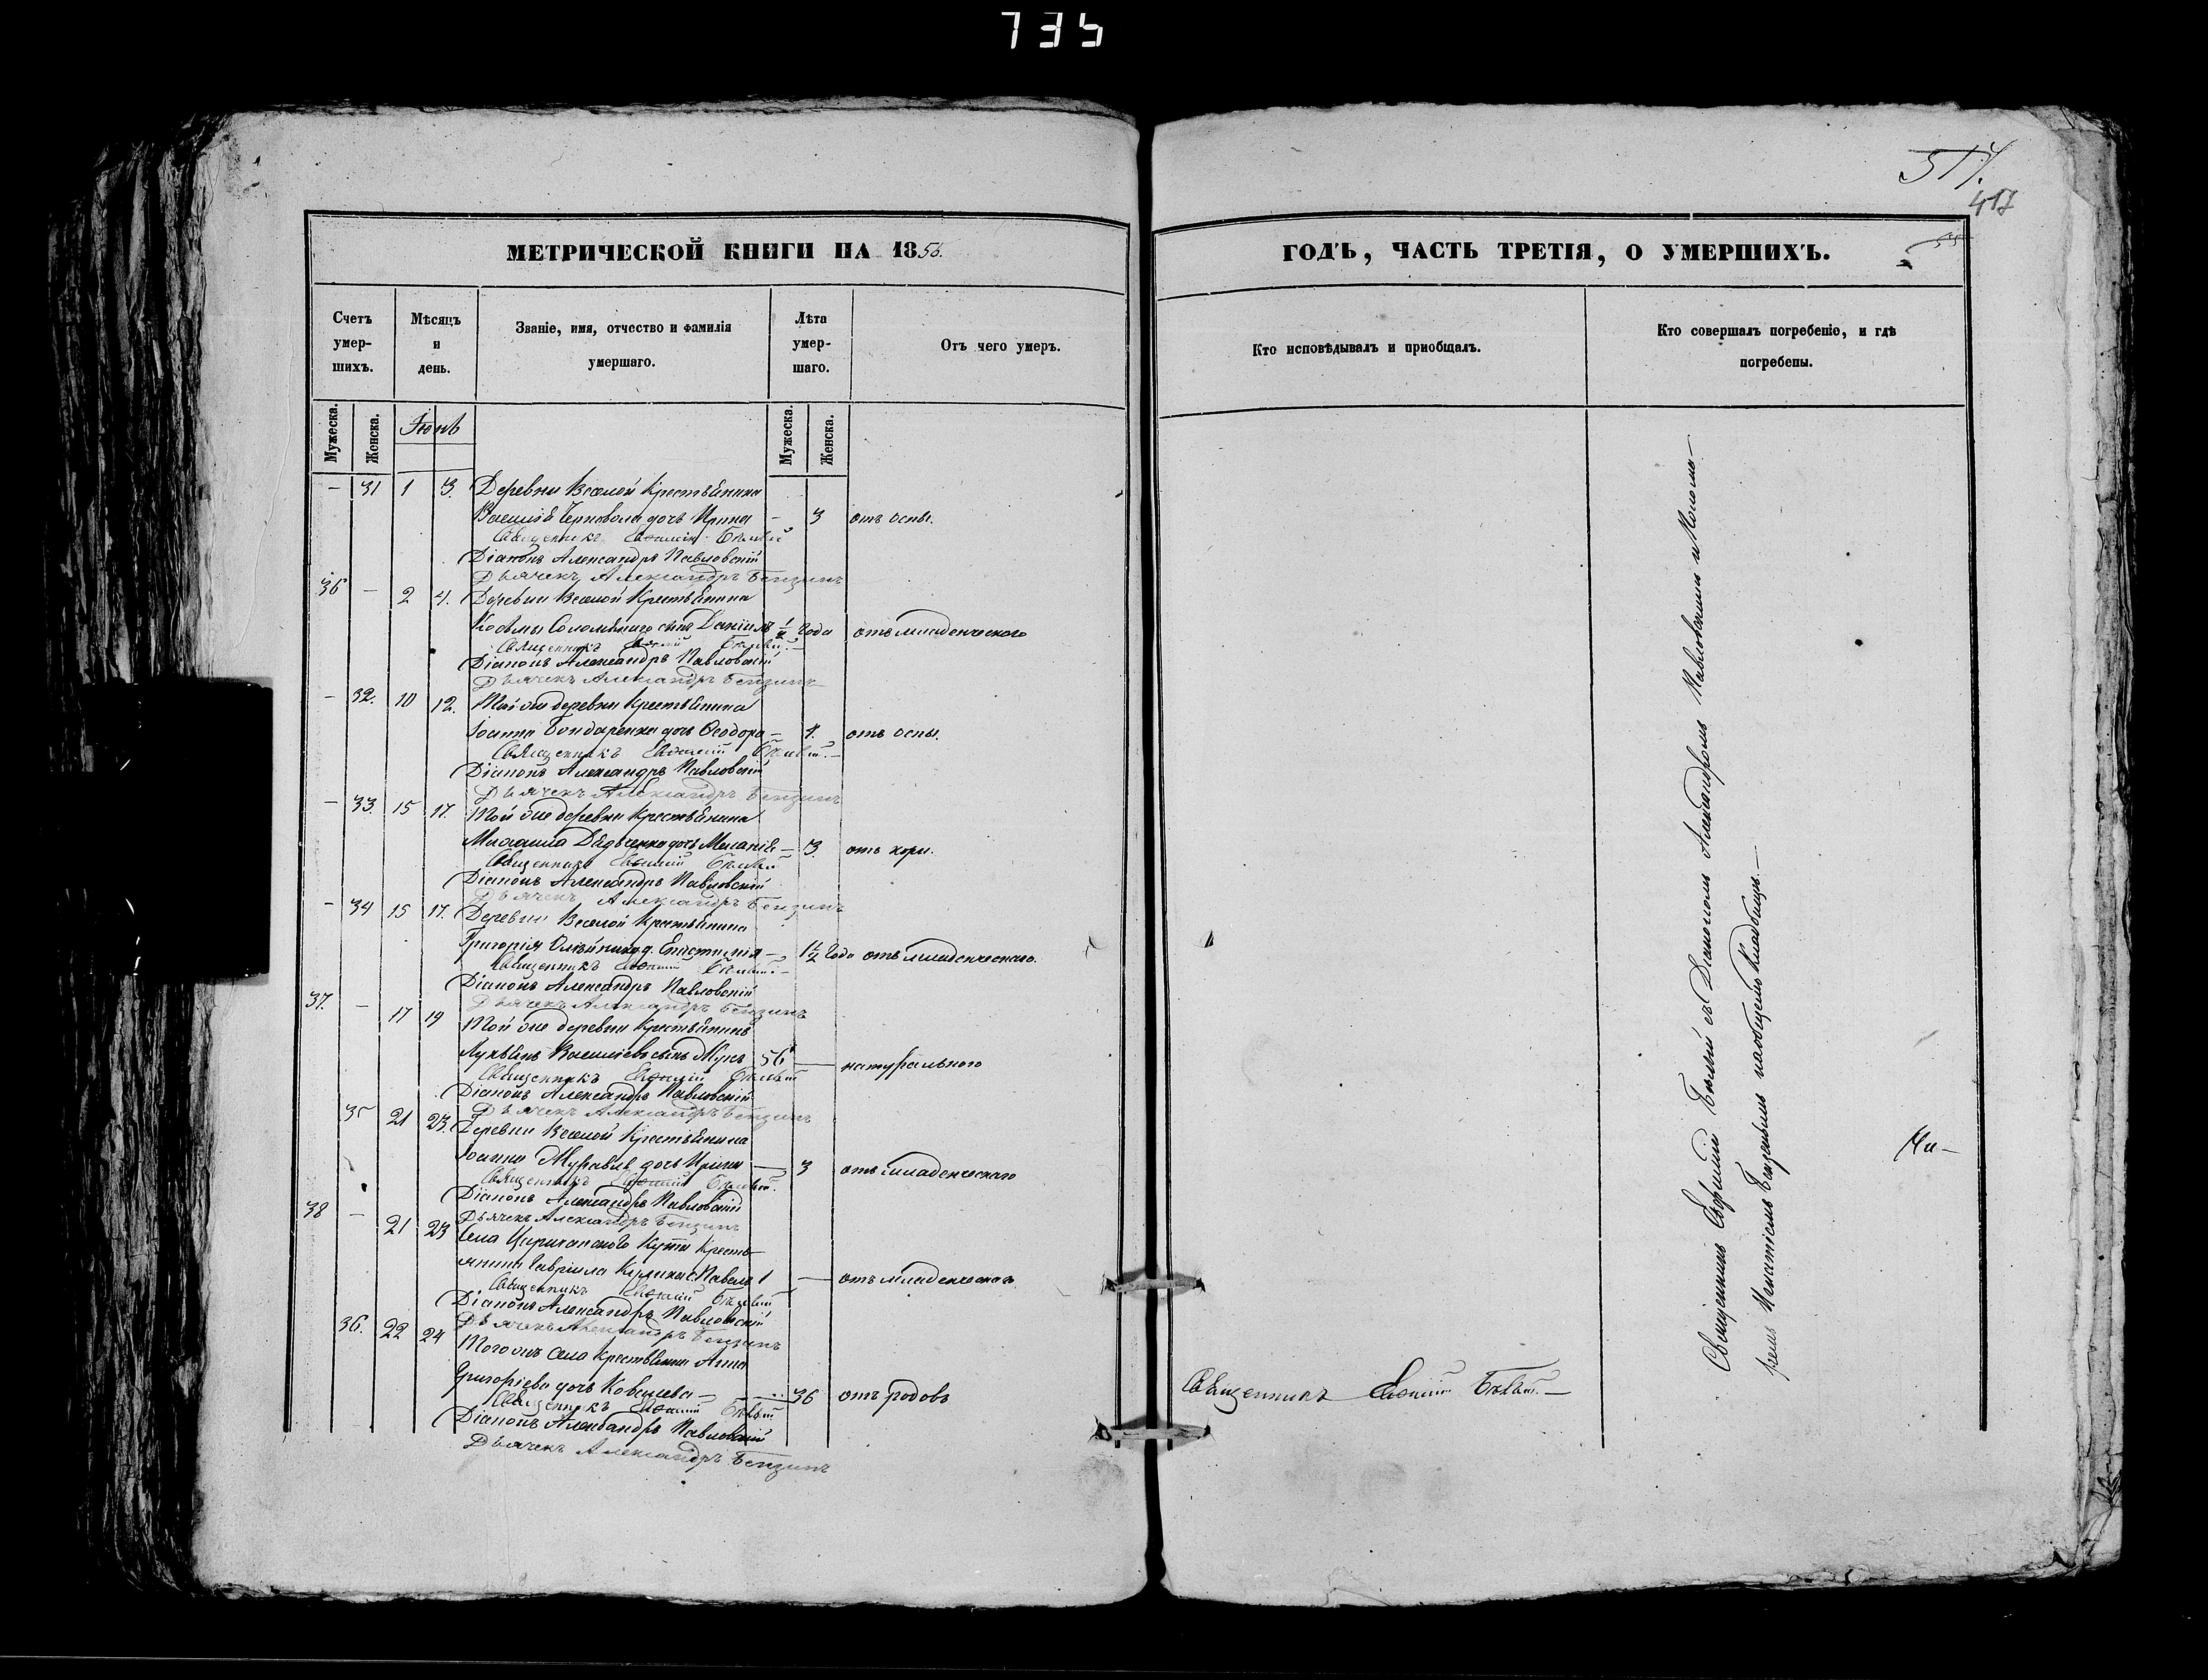 735
517.
417
55
МЕТРИЧЕСКОЙ КНИГИ НА 1856.
ГОДЪ, ЧАСТЬ ТРЕТІЯ, О УМЕРШИХЪ.
Счетъ умер-шихъ.
Мѣсяцъ и день.
Званіе, имя, отчество и фамилія умершаго.
Лѣта умер-шаго.
Отъ чего умеръ.
Кто исповѣдывалъ и пріобщалъ.
Кто совершалъ погребеніе, и гдѣ погребены.
Мужеска.
Женска.
Іюнь
Мужеска.
Женска.
— 31 1 3. Деревни Веселой Крестьянина
Василія Черновола дочь Ирина — 3 отъ оспы.
Священникъ Евфимій Бѣлый
Діаконъ Александръ Павловскій
Дьячекъ Александръ Бензинъ
36 — 2 4. Деревни Веселой Крестьянина
Косьмы сынъ Даніилъ ½ года отъ младенческаго
Священникъ Евфимій Бѣлый.
Діаконъ Александръ Павловскій
Дьячекъ Александръ Бензинъ
— 32. 10 12. Той же деревни Крестьянина
Іоанна Бондаренка дочь Ѳеодора — 1. отъ оспы.
Священникъ Евфимій Бѣлый.—
Діаконъ Александръ Павловскій
Дьячекъ Александръ Бензинъ
— 33. 15 17. Той же деревни Крестьянина
Михаила Дядьченко дочь Меланія — 3. отъ кори.
Священникъ Евфимій Бѣлый
Діаконъ Александръ Павловскій
Дьячекъ Александръ Бензинъ
— 34 15 17. Деревни Веселой Крестьянина
Григорія Олѣйника д. Епистимія — 1½ года отъ младенческаго.
Священникъ Евфимій Бѣлый —
Діаконъ Александръ Павловскій
Дьячекъ Александръ Бензинъ
37. — 17 19 Той же деревни Крестьянинъ
Лукьянъ Василіевъ сынъ 56 — натурального
Священникъ Евфимій Бѣлый
Діаконъ Александръ Павловскій
Дьячекъ Александръ Бензинъ
35 21 23. Деревни Веселой Крестьянина
Іоанна Журавля дочь Ирина — 3 отъ младенческаго
Священникъ Евфимій Бѣлый.
Діаконъ Александръ Павловскій
Дьячекъ Александръ Бензинъ
38 — 21 23 Села Цариханского Кута Кресть-
янина Гавріила с. Павелъ 1 — отъ младенческаго
Священникъ Евфимій Бѣлый
Діаконъ Александръ Павловскій
Дьячекъ Александръ Бензинъ
36. 22 24 Того жъ села Крестьянка Анна
Григоріева дочь Ковалева — 36 отъ родовъ
Священникъ Евфимій Бѣлый
Діаконъ Александръ Павловскій
Дьячекъ Александръ Бензинъ
Священникъ Евфимій Бѣлый.—
Священникъ Евфимій Бѣлый съ Діакономъ Александромъ Павловскимъ и Понома-
ремъ Игнатіемъ Бензинымъ на общемъ кладбищѣ.—
На-